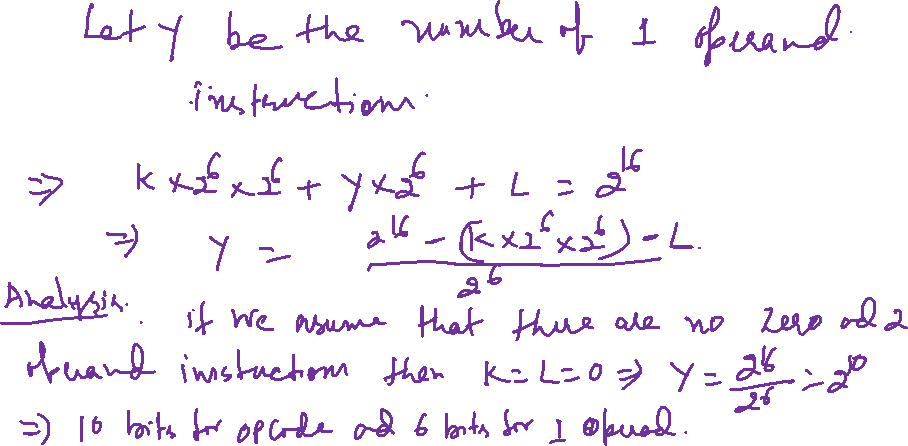 Let y be the number of 1 operand.
instruction.
⇒ K × 2^6 × 2^6 + y × 2^6 + L = 2^16
⇒ y = (2^16 - (K × 2^6 × 2^6) - L.) / 2^6
Analysis. if we assume that there are no zero ad 2
operand instruction then K = L = 0 ⇒ y = 2^16 / 2^6 = 2^10
⇒) 10 bits for opcode ad 6 bits for 1 operad.